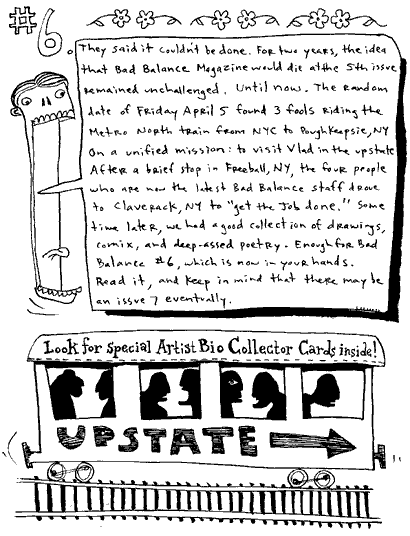 #6.
They said it couldn't be done. For two years, the idea
that Bad Balance Magazine would die at the 5th issue
remained unchallenged. Until now. The random
date of Friday April 5 found 3 fools riding the
Metro North train from NYC to Poughkeepsie, NY
On a unified mission: to visit Vlad in the upstate.
After a brief stop in Freeball, NY, the four people
who are now the latest Bad Balance staff drove
to Claverack, NY to "get the Job done." Some
time later, we had a good collection of drawings,
comix, and deep-assed poetry. Enough for Bad
Balance #6, which is now in your hands.
Read it, and keep in mind that there may be
an issue 7 eventually.
Look for Special Artist Bio Collector Cards inside!
UPSTATE